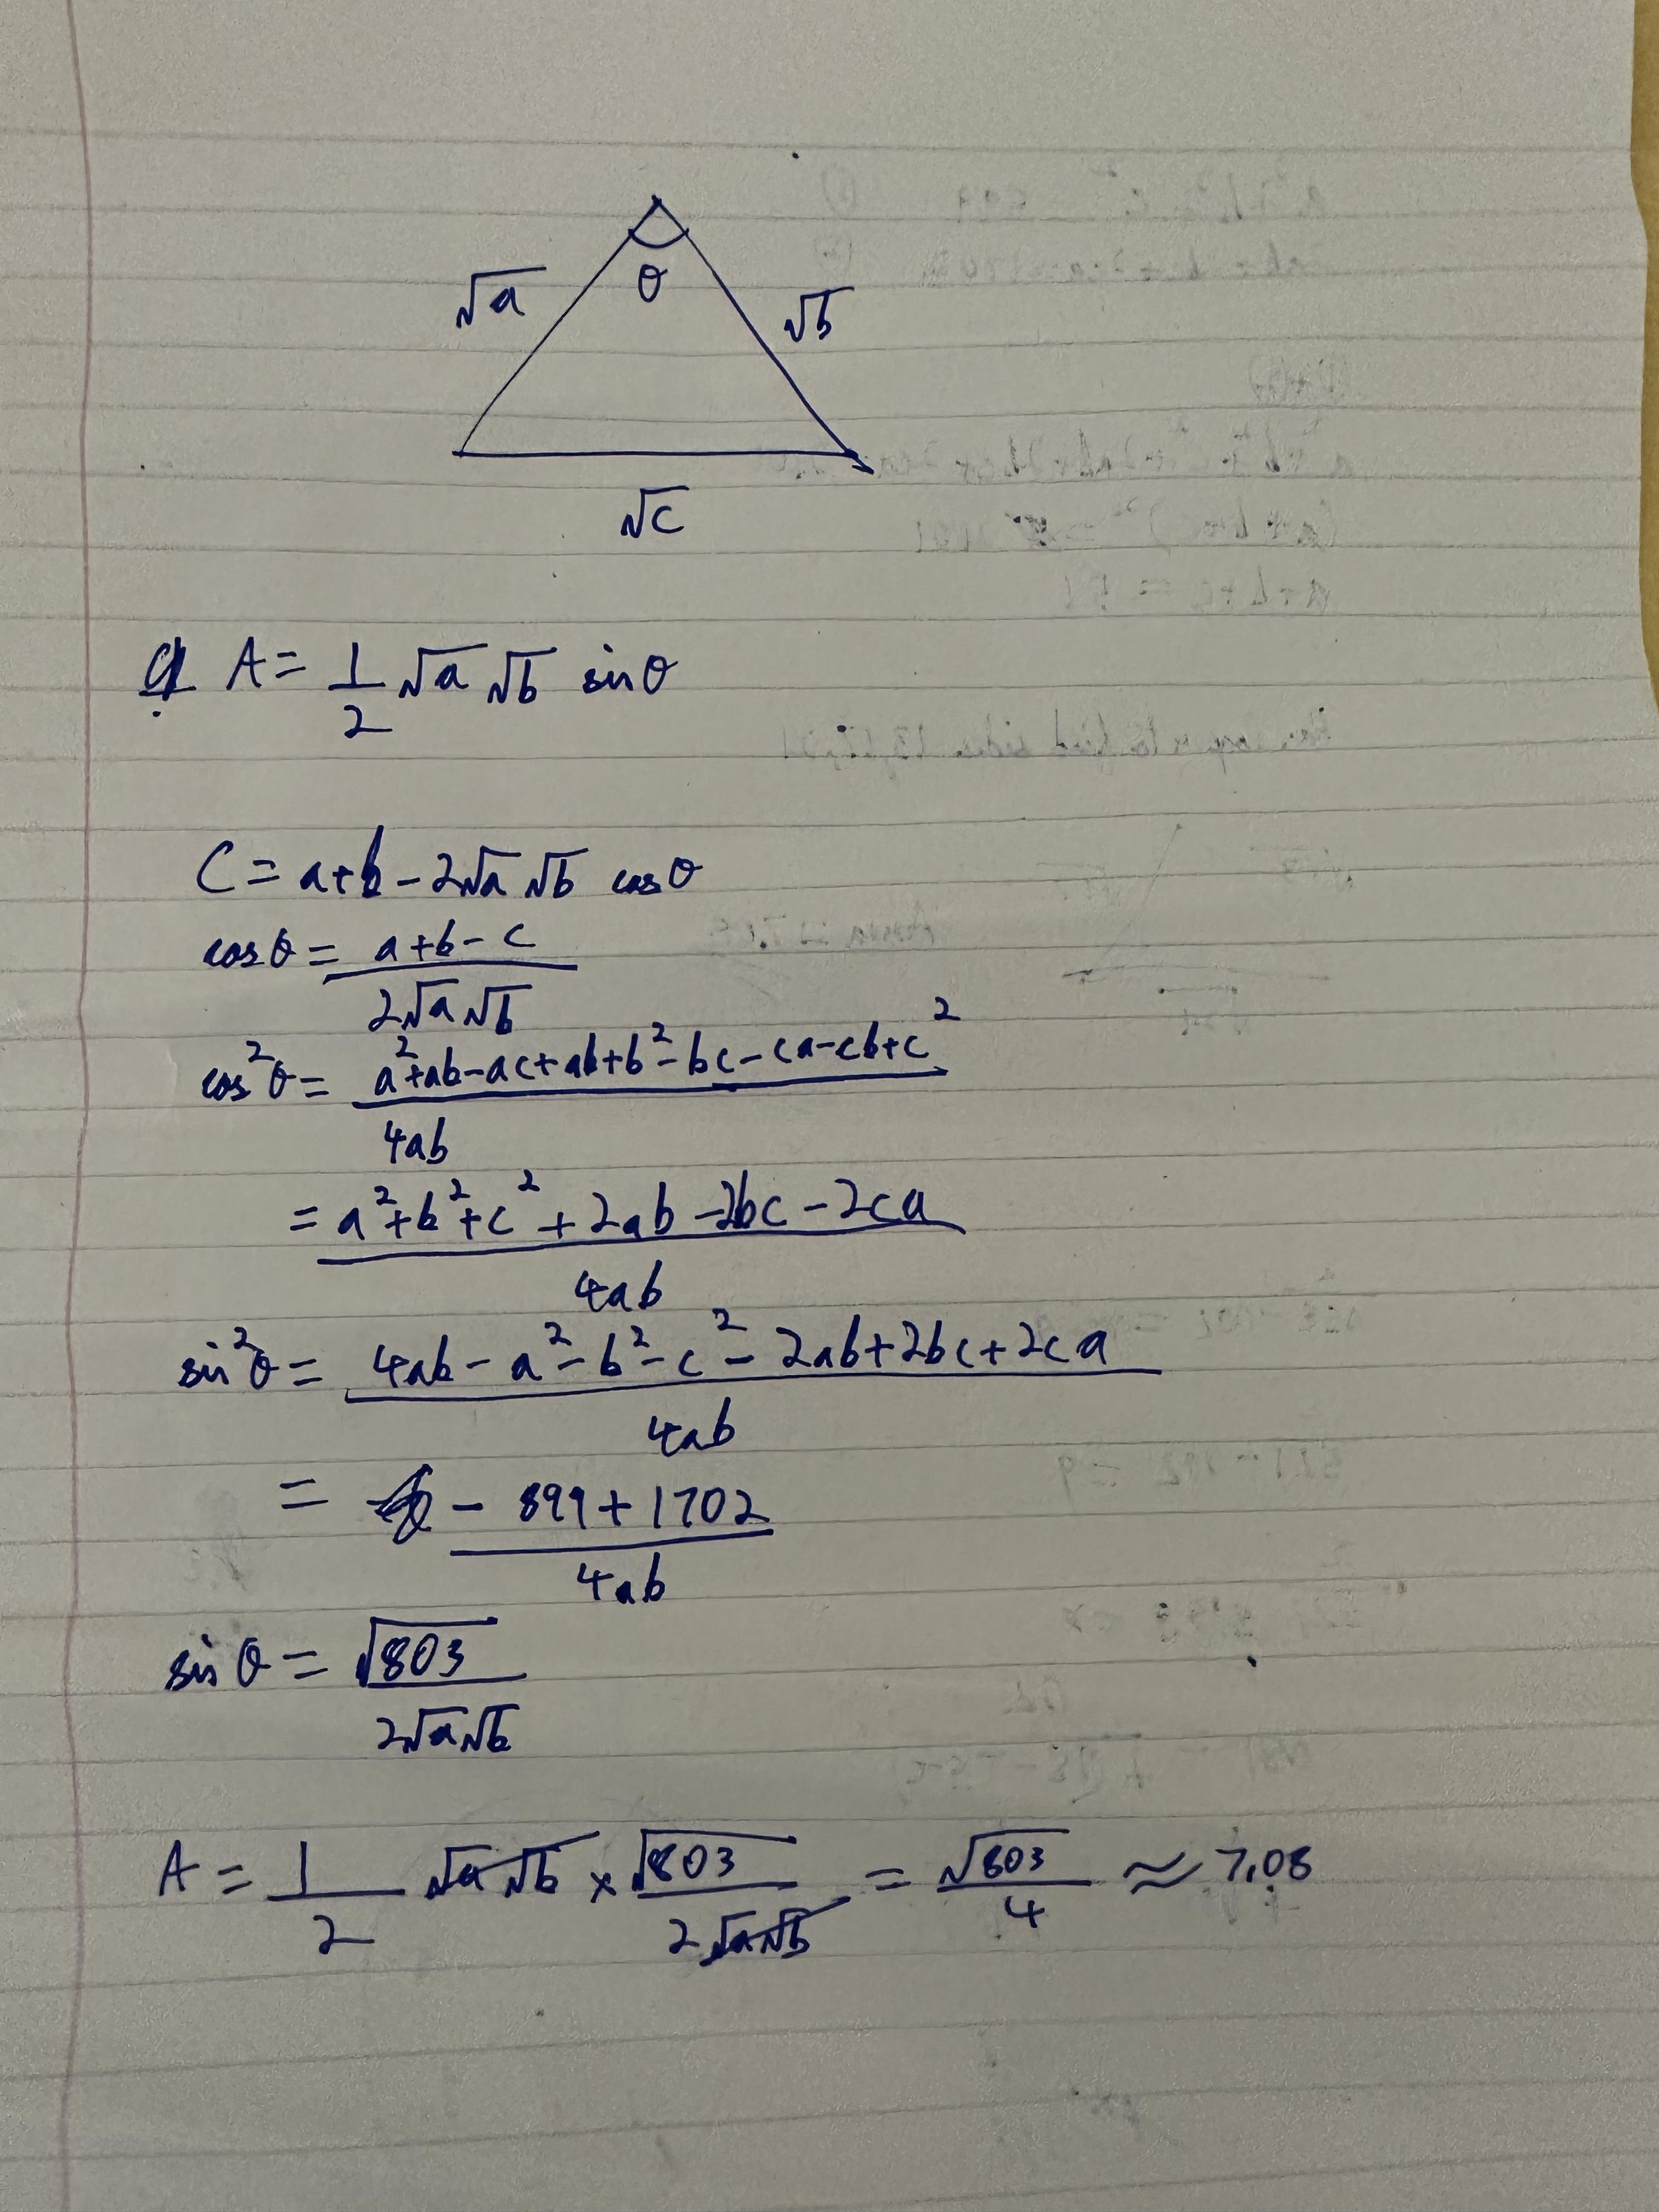 √a θ √b
√c
A = 1/2 √a √b sinθ
C = a+b-2√a √b cosθ
cosθ = (a+b-c)/(2√a√b)
cos²θ = (a²+ab-ac+ab+b²-bc-ca-cb+c²)/(4ab)
= (a²+b²+c²+2ab-2bc-2ca)/(4ab)
sin²θ = (4ab-a²-b²-c²-2ab+2bc+2ca)/(4ab)
= (-899+1702)/(4ab)
sinθ = √803/(2√a√b)
A = 1/2 √a√b × √803/(2√a√b) = √803/4 ≈ 7.08